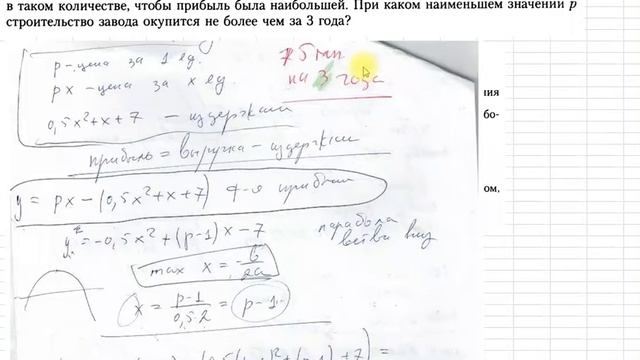 в таком количестве, чтобы прибыль была наибольшей. При каком наименьшем значении p
строительство завода окупится не более чем за 3 года?
p - цена за 1 ед.
px - цена за x ед.
0,5x²+x+7 - издержки
на 3 года
ния
бо-
прибыль = выручка - издержки
y = px - (0,5x²+x+7) ф-я прибыли
ом,
y = -0,5x² + (p-1)x - 7
парабола
ветви вниз
max x = -b/2a
x = p-1/0,5·2 = p-1